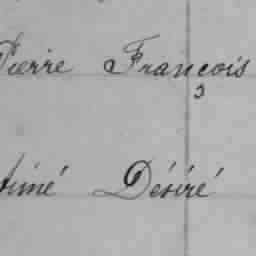 Pierre François
Aimé Désiré